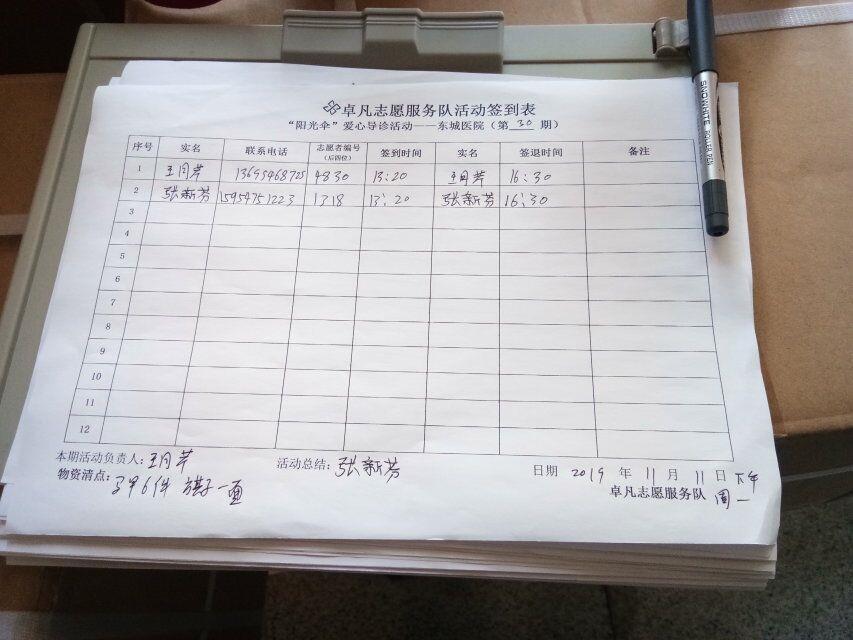 卓凡志愿服务队活动签到表
“阳光伞”爱心导诊活动——东城医院（第 30 期）
序号 实名 联系电话 志愿者编号（后四位） 签到时间 实名 签退时间 备注
1 王月芹 13695468725 4830 13:20 王月芹 16:30
2 张新芳 15954751223 1318 13:20 张新芳 16:30
3
4
5
6
7
8
9
10
11
12
本期活动负责人：王月芹 活动总结：张新芳 日期 2019 年 11 月 11 日 下午
物资清点： 6件 旗子一面 卓凡志愿服务队 周一
SNOWHITE ROLLER PEN